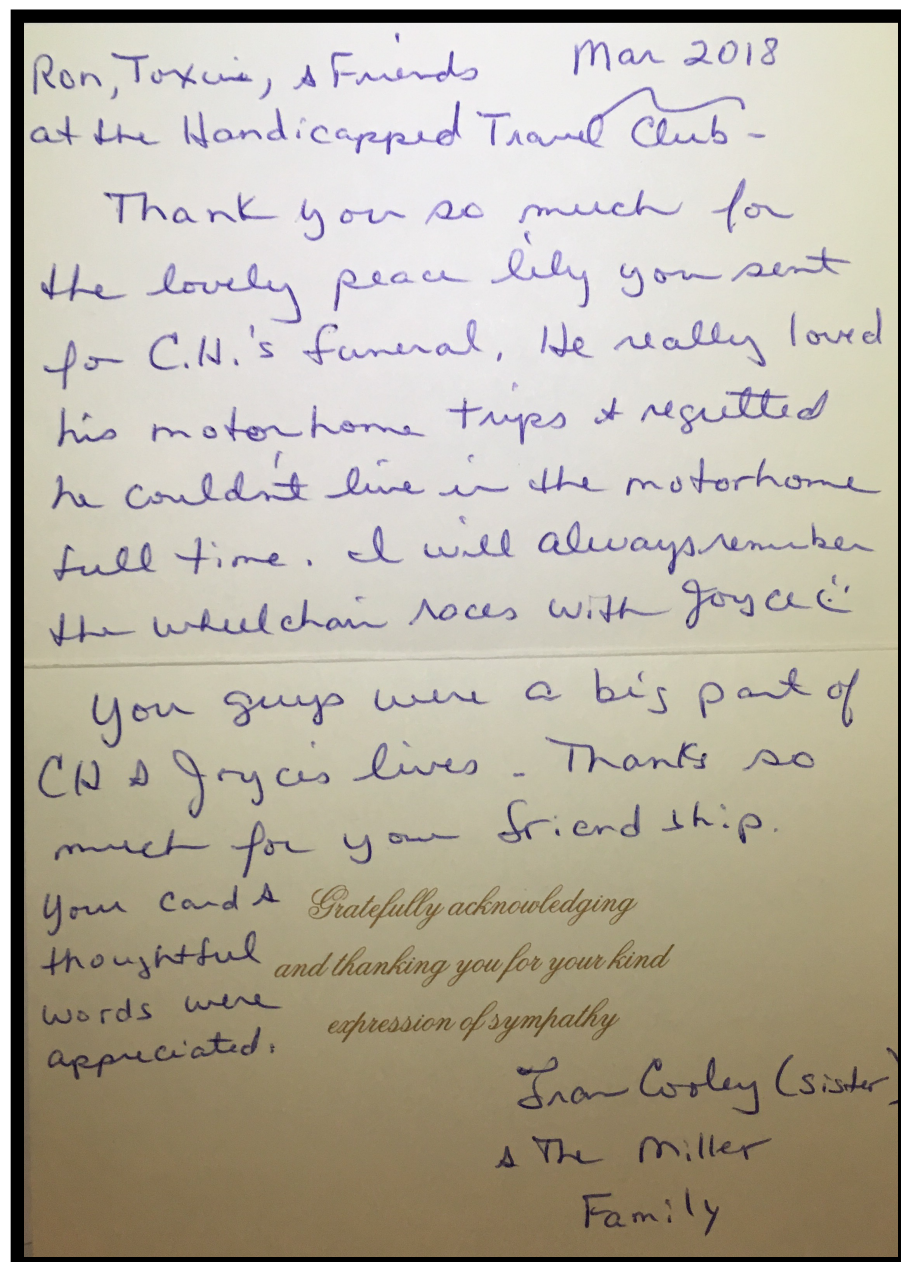 Mar 2018
Ron, Toxie, & Friends
at the Handicapped Travel Club -
Thank you so much for
the lovely peace lily you sent
for C.H.'s funeral. He really loved
his motorhome trips & regretted
he couldn't live in the motorhome
full time. I will always remember
the wheelchair races with Joyce
You guys were a big part of
CH & Joyce's lives - Thanks so
much for your friendship.
Your card &
thoughtful
words were
appreciated.
Gratefully acknowledging
and thanking you for your kind
expression of sympathy
Fran Cooley (sister)
& The Miller
Family